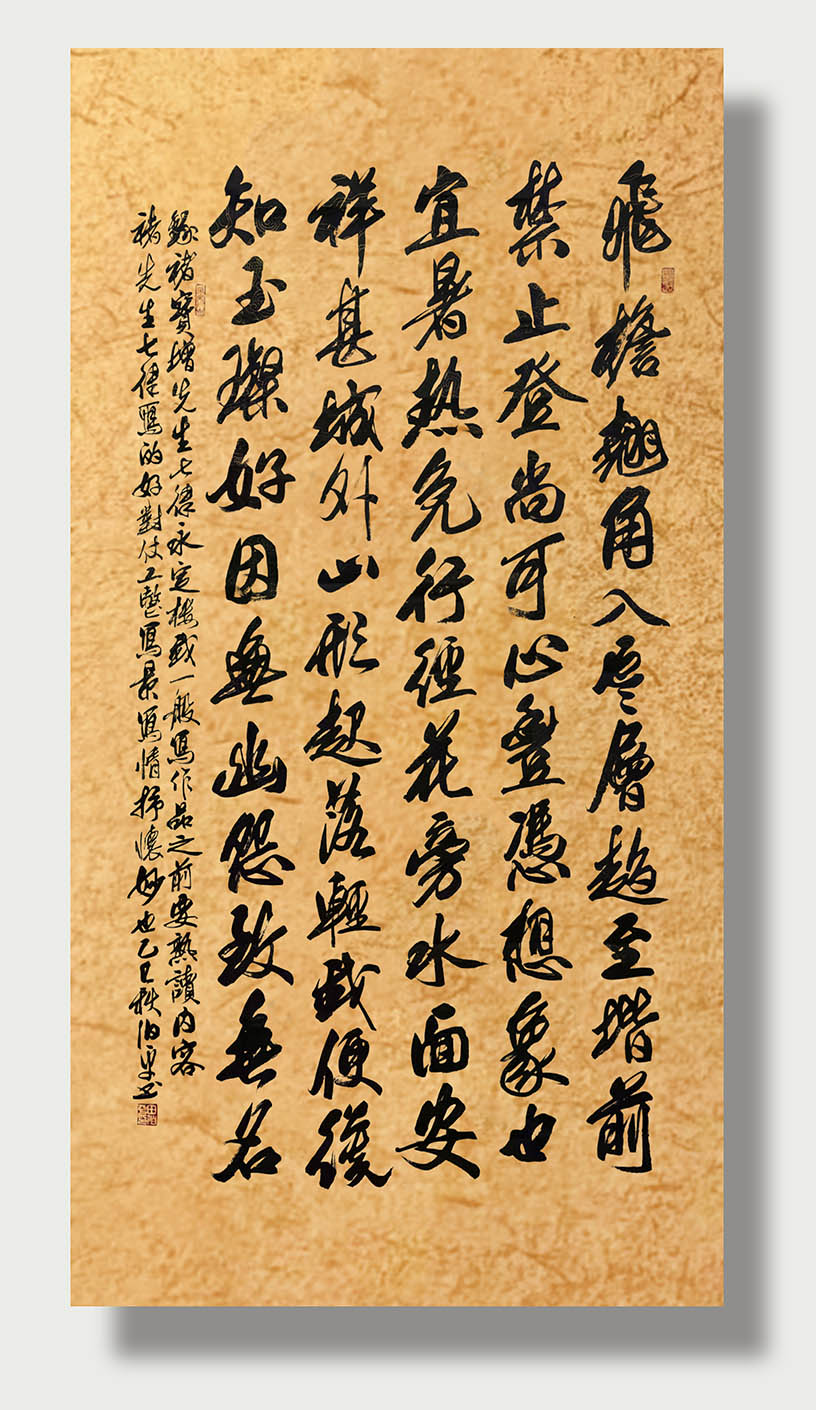 飛檐翹角入雲層趨至堦前
禁止登尚可心豐憑想象也
宜暑热免行徑花旁水面安
祥甚城外山形起落輕便後
知玉璨好因無幽怨致無名
錄褚寶增先生七律永定樓一般寫作品之前要熟讀内容
褚先生七律寫的好對仗工整寫景寫情抒懷妙也乙巳秋伯平書